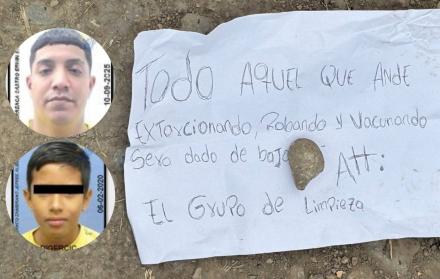 Todo AQUEL QUE ANDE
EXTorcionando, Robando y Vacunando
Sera dado de baja
Att:
EL Grupo de LimPieza
10-09-2025
06-02-2020
DIGERCIC